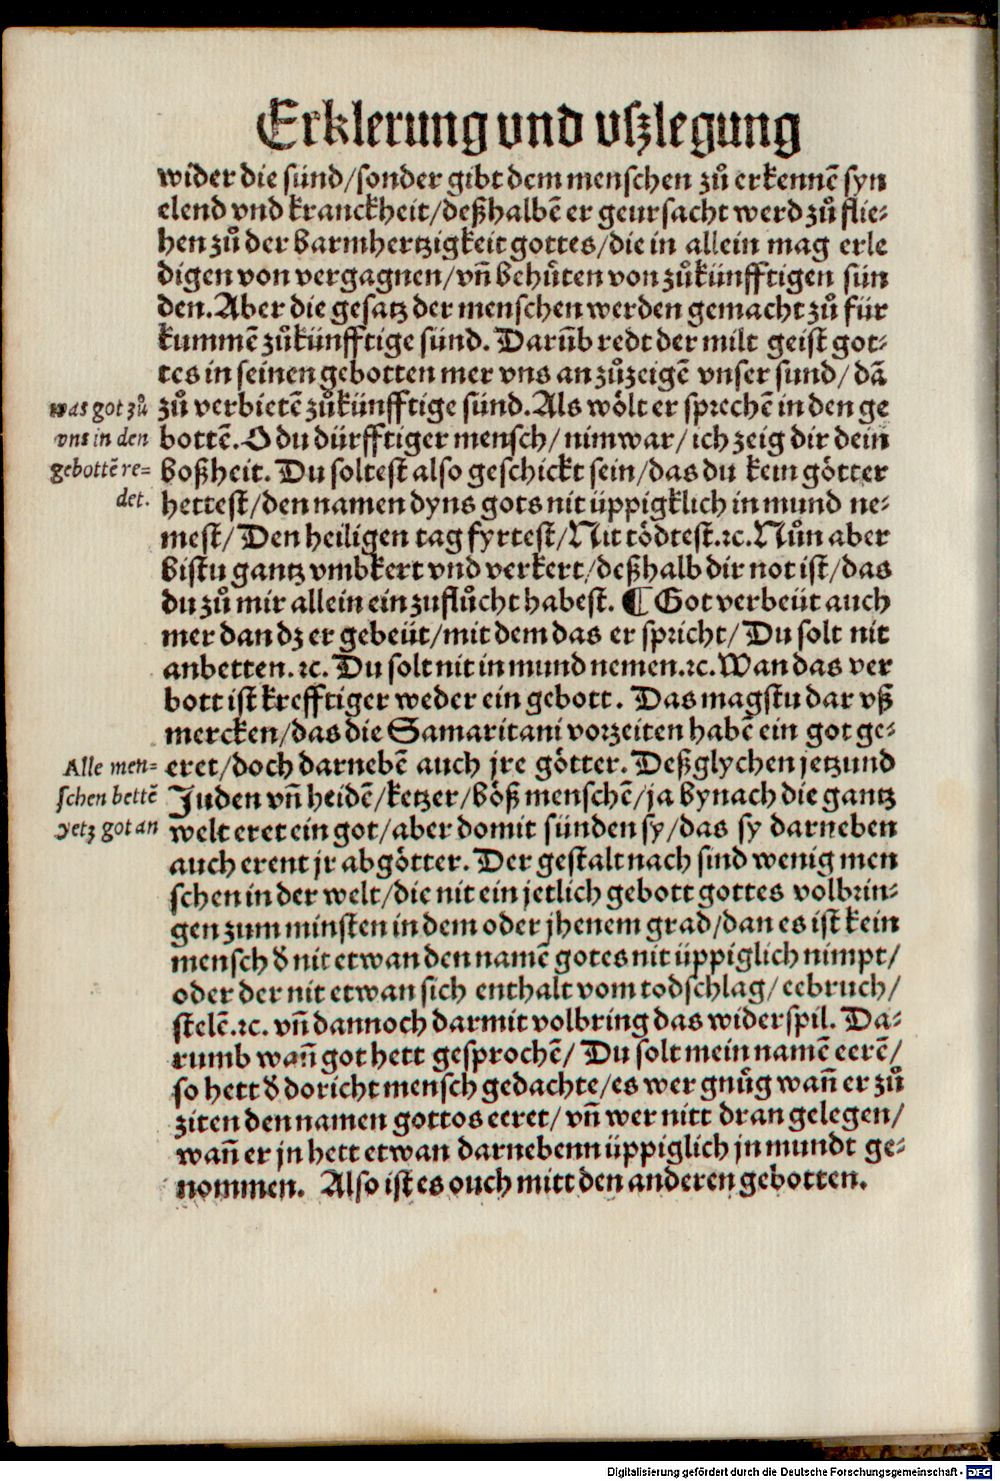 Erklerung vnd vſzlegung
wider die ſünd/ſonder gibt dem menſchen zů erkennē ſyn
elend vnd kranckheit/deßhalbē er geurſacht werd zů flie-
hen zů der barmhertzigkeit gottes/die in allein mag erle
digen von vergagnen/vñ behüten von zůkünfftigen ſün
den. Aber die geſatz der menſchen werden gemacht zů für
kummē zůkünfftige ſünd. Darūb redt der milt geiſt got-
tes in ſeinen gebotten mer vns an zůzeigē vnſer ſund/ dā
zů verbietē zůkünfftige ſünd. Als wölt er ſprechē in den ge
was got zů
vns in den
gebottē re-
det.
bottē. O du dürfftiger menſch/ nim war/ ich zeig dir dein
boßheit. Du ſolteſt alſo geſchickt ſein/das du kein götter
hetteſt/den namen dyns gots nit üppigklich in mund ne-
meſt/ Den heiligen tag fyrteſt/Nit tödteſt.⁊c. Nůn aber
biſtu gantz vmbkert vnd verkert/deßhalb dir not iſt/das
du zů mir allein ein zuflůcht habeſt. ¶ Got verbeüt auch
mer dan dz er gebeüt/mit dem das er ſpricht/ Du ſolt nit
anbetten.⁊c. Du ſolt nit in mund nemen.⁊c. Wan das ver
bott iſt krefftiger weder ein gebott. Das magſtu dar vß
mercken/das die Samaritani vorzeiten habē ein got ge-
Alle men-
ſchen bettē
yetz got an
eret/doch darnebē auch jre götter. Deßglychen jetzund
Juden vñ heidē/ketzer/böß menſchē/ja bynach die gantz
welt eret ein got/aber domit ſünden ſy/das ſy darneben
auch erent jr abgötter. Der geſtalt nach ſind wenig men
ſchen in der welt/die nit ein jetlich gebott gottes volbrin-
gen zum minſten in dem oder jhenem grad/dan es iſt kein
menſch ð nit etwan den namē gotes nit üppiglich nimpt/
oder der nit etwan ſich enthalt vom todſchlag/eebruch/
ſtelē.⁊c. vñ dannoch darmit volbring das widerſpil. Da-
rumb wañ got hett geſprochē/ Du ſolt mein namē eerē/
ſo hett ð doricht menſch gedachte/es wer gnůg wañ er zů
ziten den namen gottos eeret/ vñ wer nitt dran gelegen/
wañ er jn hett etwan darnebenn üppiglich jn mundt ge-
nommen. Alſo iſt es ouch mitt den anderen gebotten.
Digitalisierung gefördert durch die Deutsche Forschungsgemeinschaft - DFG